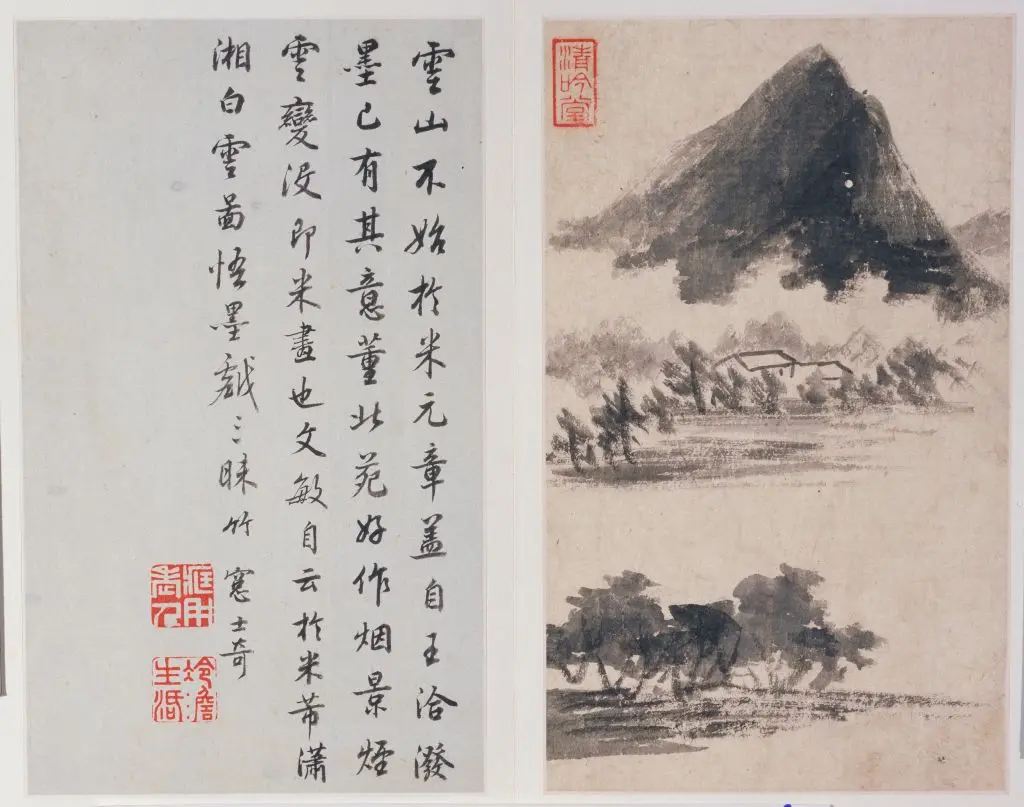 清吟堂
雲山不始於米元章蓋自王洽潑
墨已有其意董北苑好作烟景煙
雲變没即米畫也文敏自云於米芾瀟
湘白雲啚悟墨戯三昧竹窓士奇
冷澹生活